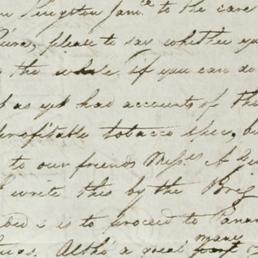 Kingston Jam.ca to the care
please to say whether yo
the whole, if you can do
as yet had accounts of thi
profitable tobacco spec, bu
to our friends Mess.s A
write this by the Brig
is to proceed to Panam
Altho' a great many